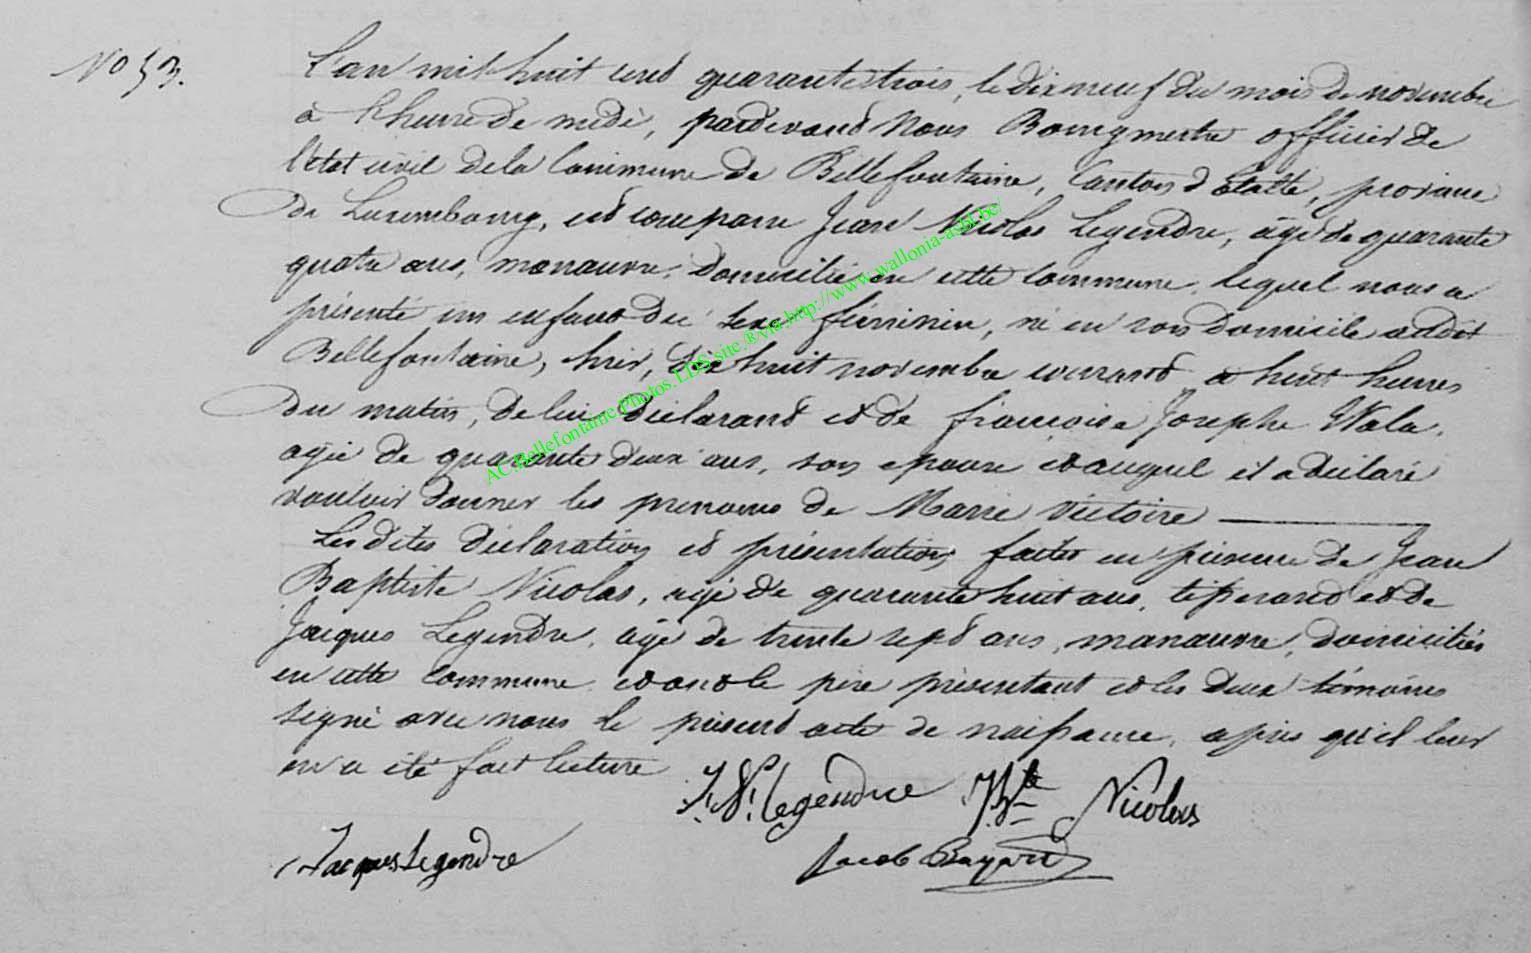 No 53.
L'an mil huit cent quarante trois, le dix neuf du mois de novembre
à l'heure de midi, pardevant Nous Bourgmestre officier de
l'état civil de la Commune de Bellefontaine, Canton d'Etalle, province
de Luxembourg, est comparu Jean Nicolas Legendre, âgé de quarante
quatre ans, manœuvre, domicilié en cette commune, lequel nous a
présenté un enfant du sexe féminin, né en son domicile audit
Bellefontaine, hier, dix huit novembre courant à huit heures
du matin, de lui déclarant et de françoise Josephe Wala,
agée de quarante deux ans, son epouse et auquel il a déclaré
vouloir donner les prenoms de Marie Victoire
Les dites déclaration et présentation faites en présence de Jean
Baptiste Nicolas, agé de quarante huit ans, et de
Jacques Legendre, agé de trente sept ans, manœuvre, domiciliés
en cette commune, et ont le père présentant et les deux témoins
signé avec nous le présent acte de naissance, après qu'il leur
en a été fait lecture
J. N. Legendre J Bte Nicolas
Jacques Legendre Jacob Bayard
AC.Bellefontaine.Photos.LDS.site.®via.http://www.wallonia-asbl.be/